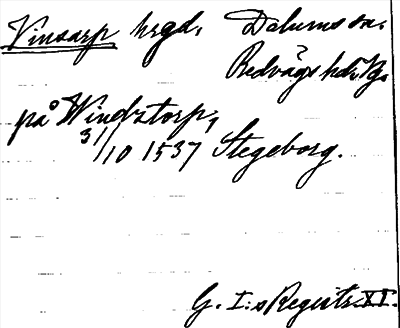 Vinsarp hrgd. Dalums sn.
Redvägs hd. Vg.
på Windztorp,
31/10 1537 Stegeborg.
G. I:s Registr. XI.